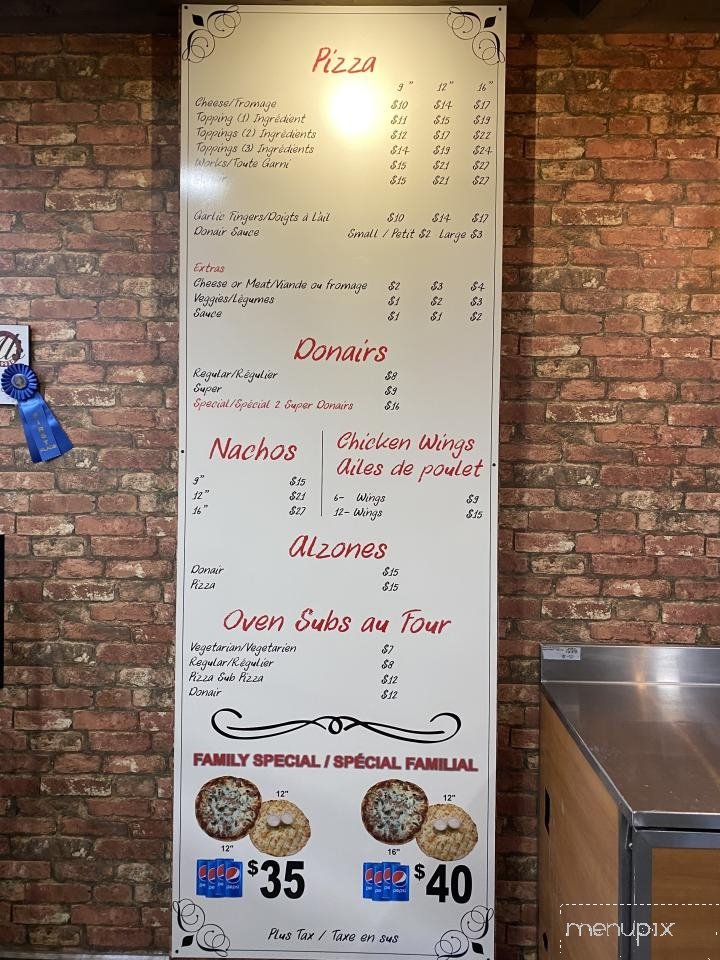 Pizza
9" 12" 16"
Cheese/Fromage $10 $14 $17
Topping (1) Ingrédient $11 $15 $19
Toppings (2) Ingrédients $12 $17 $22
Toppings (3) Ingrédients $14 $19 $24
Works/Toute Garni $15 $21 $27
$15 $21 $27
Garlic Fingers/Doigts à L'ail $10 $14 $17
Donair Sauce Small / Petit $2 Large $3
Extras
Cheese or Meat/Viande ou fromage $2 $3 $4
Veggies/Légumes $1 $2 $3
Sauce $1 $1 $2
Donairs
Regular/Régulier $8
Super $9
Special/Spécial 2 Super Donairs $16
Nachos
9" $15
12" $21
16" $27
Chicken Wings
Ailes de poulet
6- Wings $9
12- Wings $15
Alzones
Donair $15
Pizza $15
Oven Subs au Four
Vegetarian/Vegetarien $7
Regular/Régulier $8
Pizza Sub Pizza $12
Donair $12
FAMILY SPECIAL / SPÉCIAL FAMILIAL
12" 12"
12" 16"
pepsi $35 pepsi $40
Plus Tax / Taxe en sus
menupix